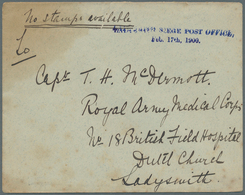 No stamps available
SIEGE POST OFFICE,
Feb. 17th, 1900.
To
Capt. T. H. McDermott
Royal Army Medical Corps
No 18 British Field Hospital
Dutch Church
Ladysmith